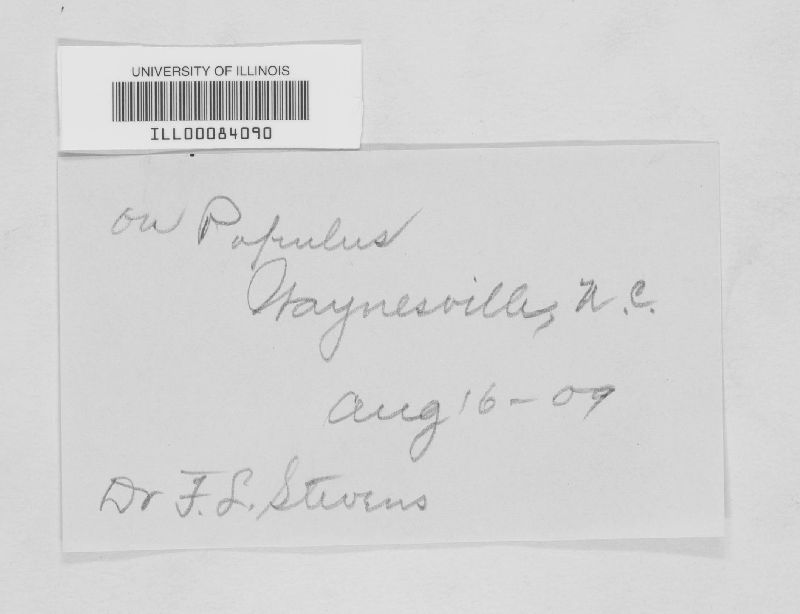 UNIVERSITY OF ILLINOIS
ILL00084090
on Populus
Waynesville, N.C.
Aug 16-09
Dr F. L. Stevens